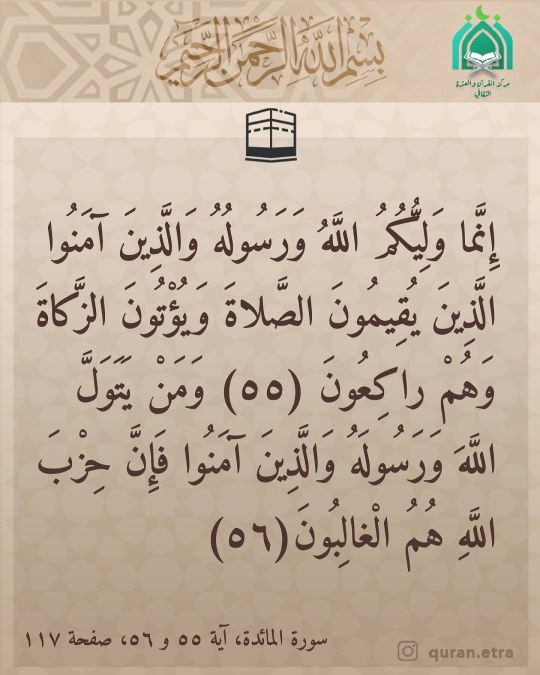 بسم الله الرحمن الرحيم
مركز القرآن والعترة
الثقافي
إِنَّما وَلِيُّكُمُ اللَّهُ وَرَسُولُهُ وَالَّذِينَ آمَنُوا
الَّذِينَ يُقِيمُونَ الصَّلاةَ وَيُؤْتُونَ الزَّكاةَ
وَهُمْ راكِعُونَ (٥٥) وَمَنْ يَتَوَلَّ
اللَّهَ وَرَسُولَهُ وَالَّذِينَ آمَنُوا فَإِنَّ حِزْبَ
اللَّهِ هُمُ الْغالِبُونَ(٥٦)
سورة المائدة، آية ٥٥ و ٥٦، صفحة ١١٧
quran.etra